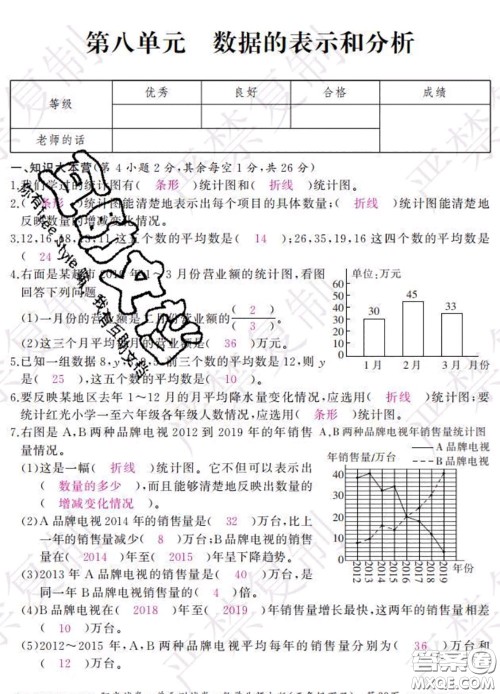 第八单元 数据的表示和分析
等级 优秀 良好 合格 成绩
老师的话
一、知识大本营(第 4 小题 2 分,其余每空 1 分,共 26 分)
1.我们学过的统计图有( 条形 )统计图和( 折线 )统计图。
2.( 条形 )统计图能清楚地表示出每个项目的具体数量;( 折线 )统计图能清楚地
反映数量的增减变化情况。
3.12,16,18,13,11 这五个数的平均数是( 14 );26,35,19,16 这四个数的平均数是
( 24
4.右面是某超市 2019 年 1～3 月份营业额的统计图,看图
回答下列问题。
(1)一月份的营业额是二月份营业额的( 2 )
( 3 )
(2)这三个月平均 的营业额是( 36 )万元。
单位:万元
30 45 33
1 月 2 月 3 月 月份
5.已知一组数据 8,y 前三个数的平均数是 12,则
是( 25 ),这五个数的平均数是( 10 )。
6.要反映某地区去年 1～12 月的月平均降水量变化情况,应选用( 折线 )统计图;要
统计红光小学一至六年级各年级人数情况,应选用( 条形 )统计图。
7.右图是 A,B 两种品牌电视 2012 到 2019 年的年销售
量情况。
(1)这是一幅( 折线 )统计图。它不但可以表示出
( 数量的多少 ),而且能够清楚地反映出数量的
( 增减变化情况 )。
(2)A 品牌电视 2014 年的销售量是( 32 )万台,比上
一年的销售量减少( 8 )万台;B 品牌电视的销售
量在( 2014 )年至( 2015 )年呈下降趋势。
(3)2013 年 A 品牌电视的销售量是( 40 )万台,是
同一年 B 品牌电视的销售量的( 4 )倍。
A,B 两种品牌电视年销售量统计图
A 品牌电视
年销售量/万台 B 品牌电视
2012 2013 2014 2015 2016 2017 2018 2019 年份
(4)B 品牌电视在( 2018 )年至( 2019 )年销售量增长最快,这两年的销售量相差
( 10 )万台。
(5)2012～2015 年,A,B 两种品牌电视平均每年的销售量分别为( 36 )万台和
( 12 )万台。
严禁复制
严禁复制
答案圈
MXQE.COM